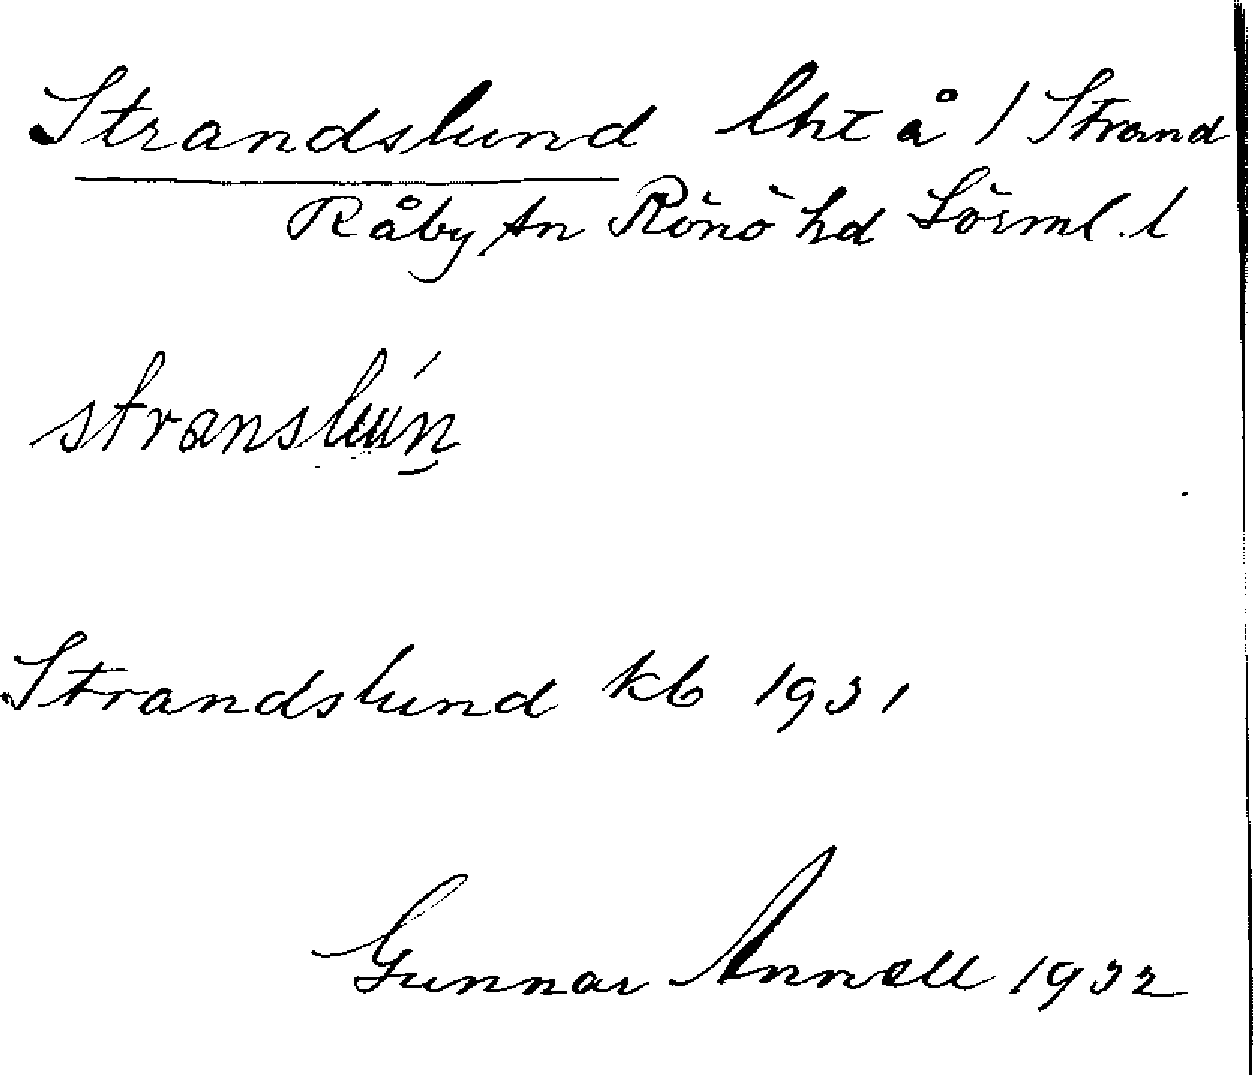 Strandslund lht å 1 Strand
Råby sn Rönö hd Sörml. l
Strandslund kb 1931
Gunnar Annell 1932